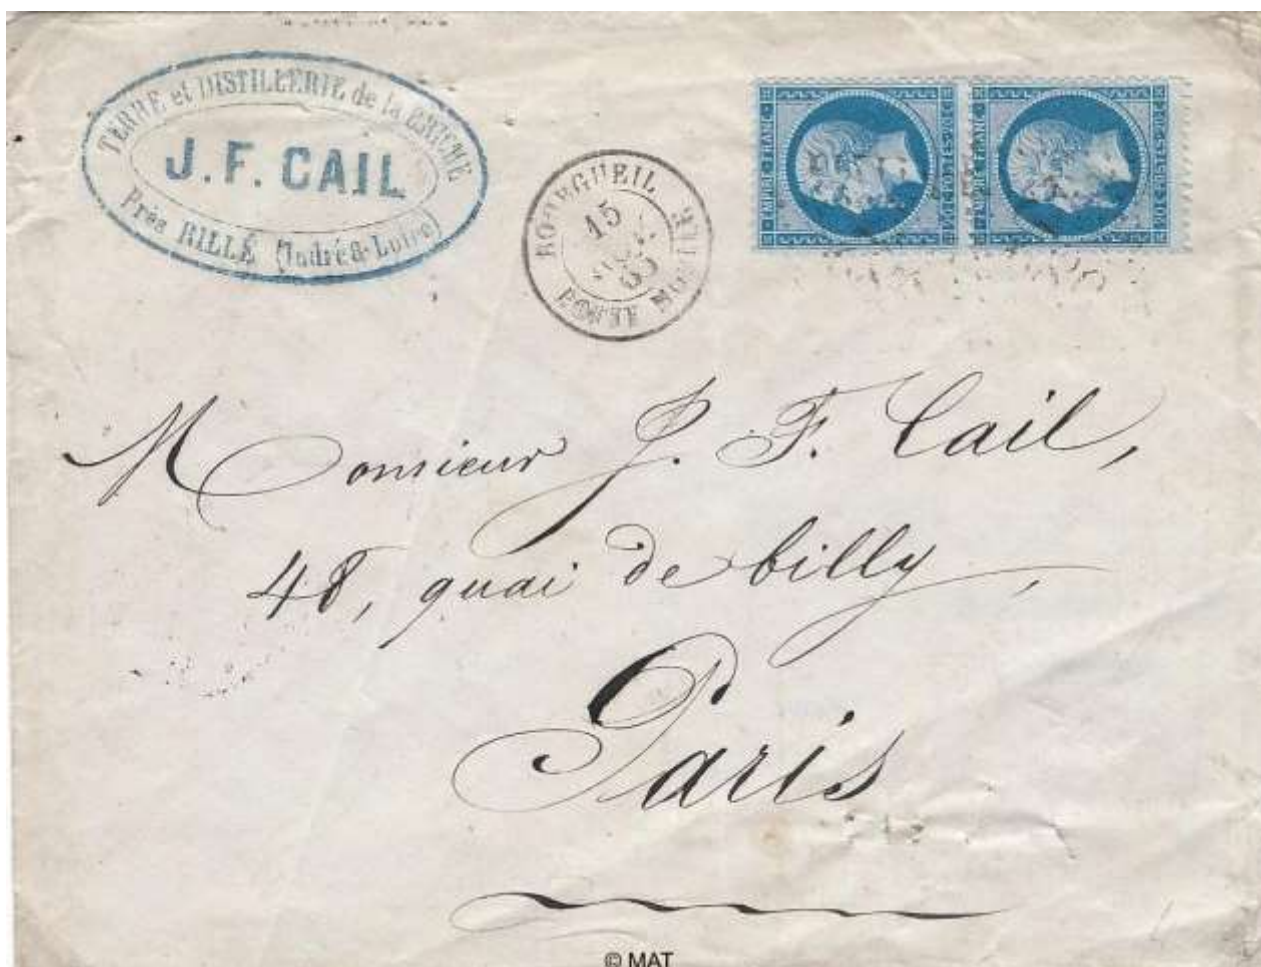 TERRE et DISTILLERIE de la
J. F. CAIL
Près RILLÉ (Indre & Loire)
BOURGUEIL
15
POSTE MOBILE
EMPIRE FRANC.
20 C POSTES 20 C
EMPIRE FRANC.
20 C POSTES 20 C
Monsieur J. F. Cail,
48, quai de billy,
Paris
© MAT